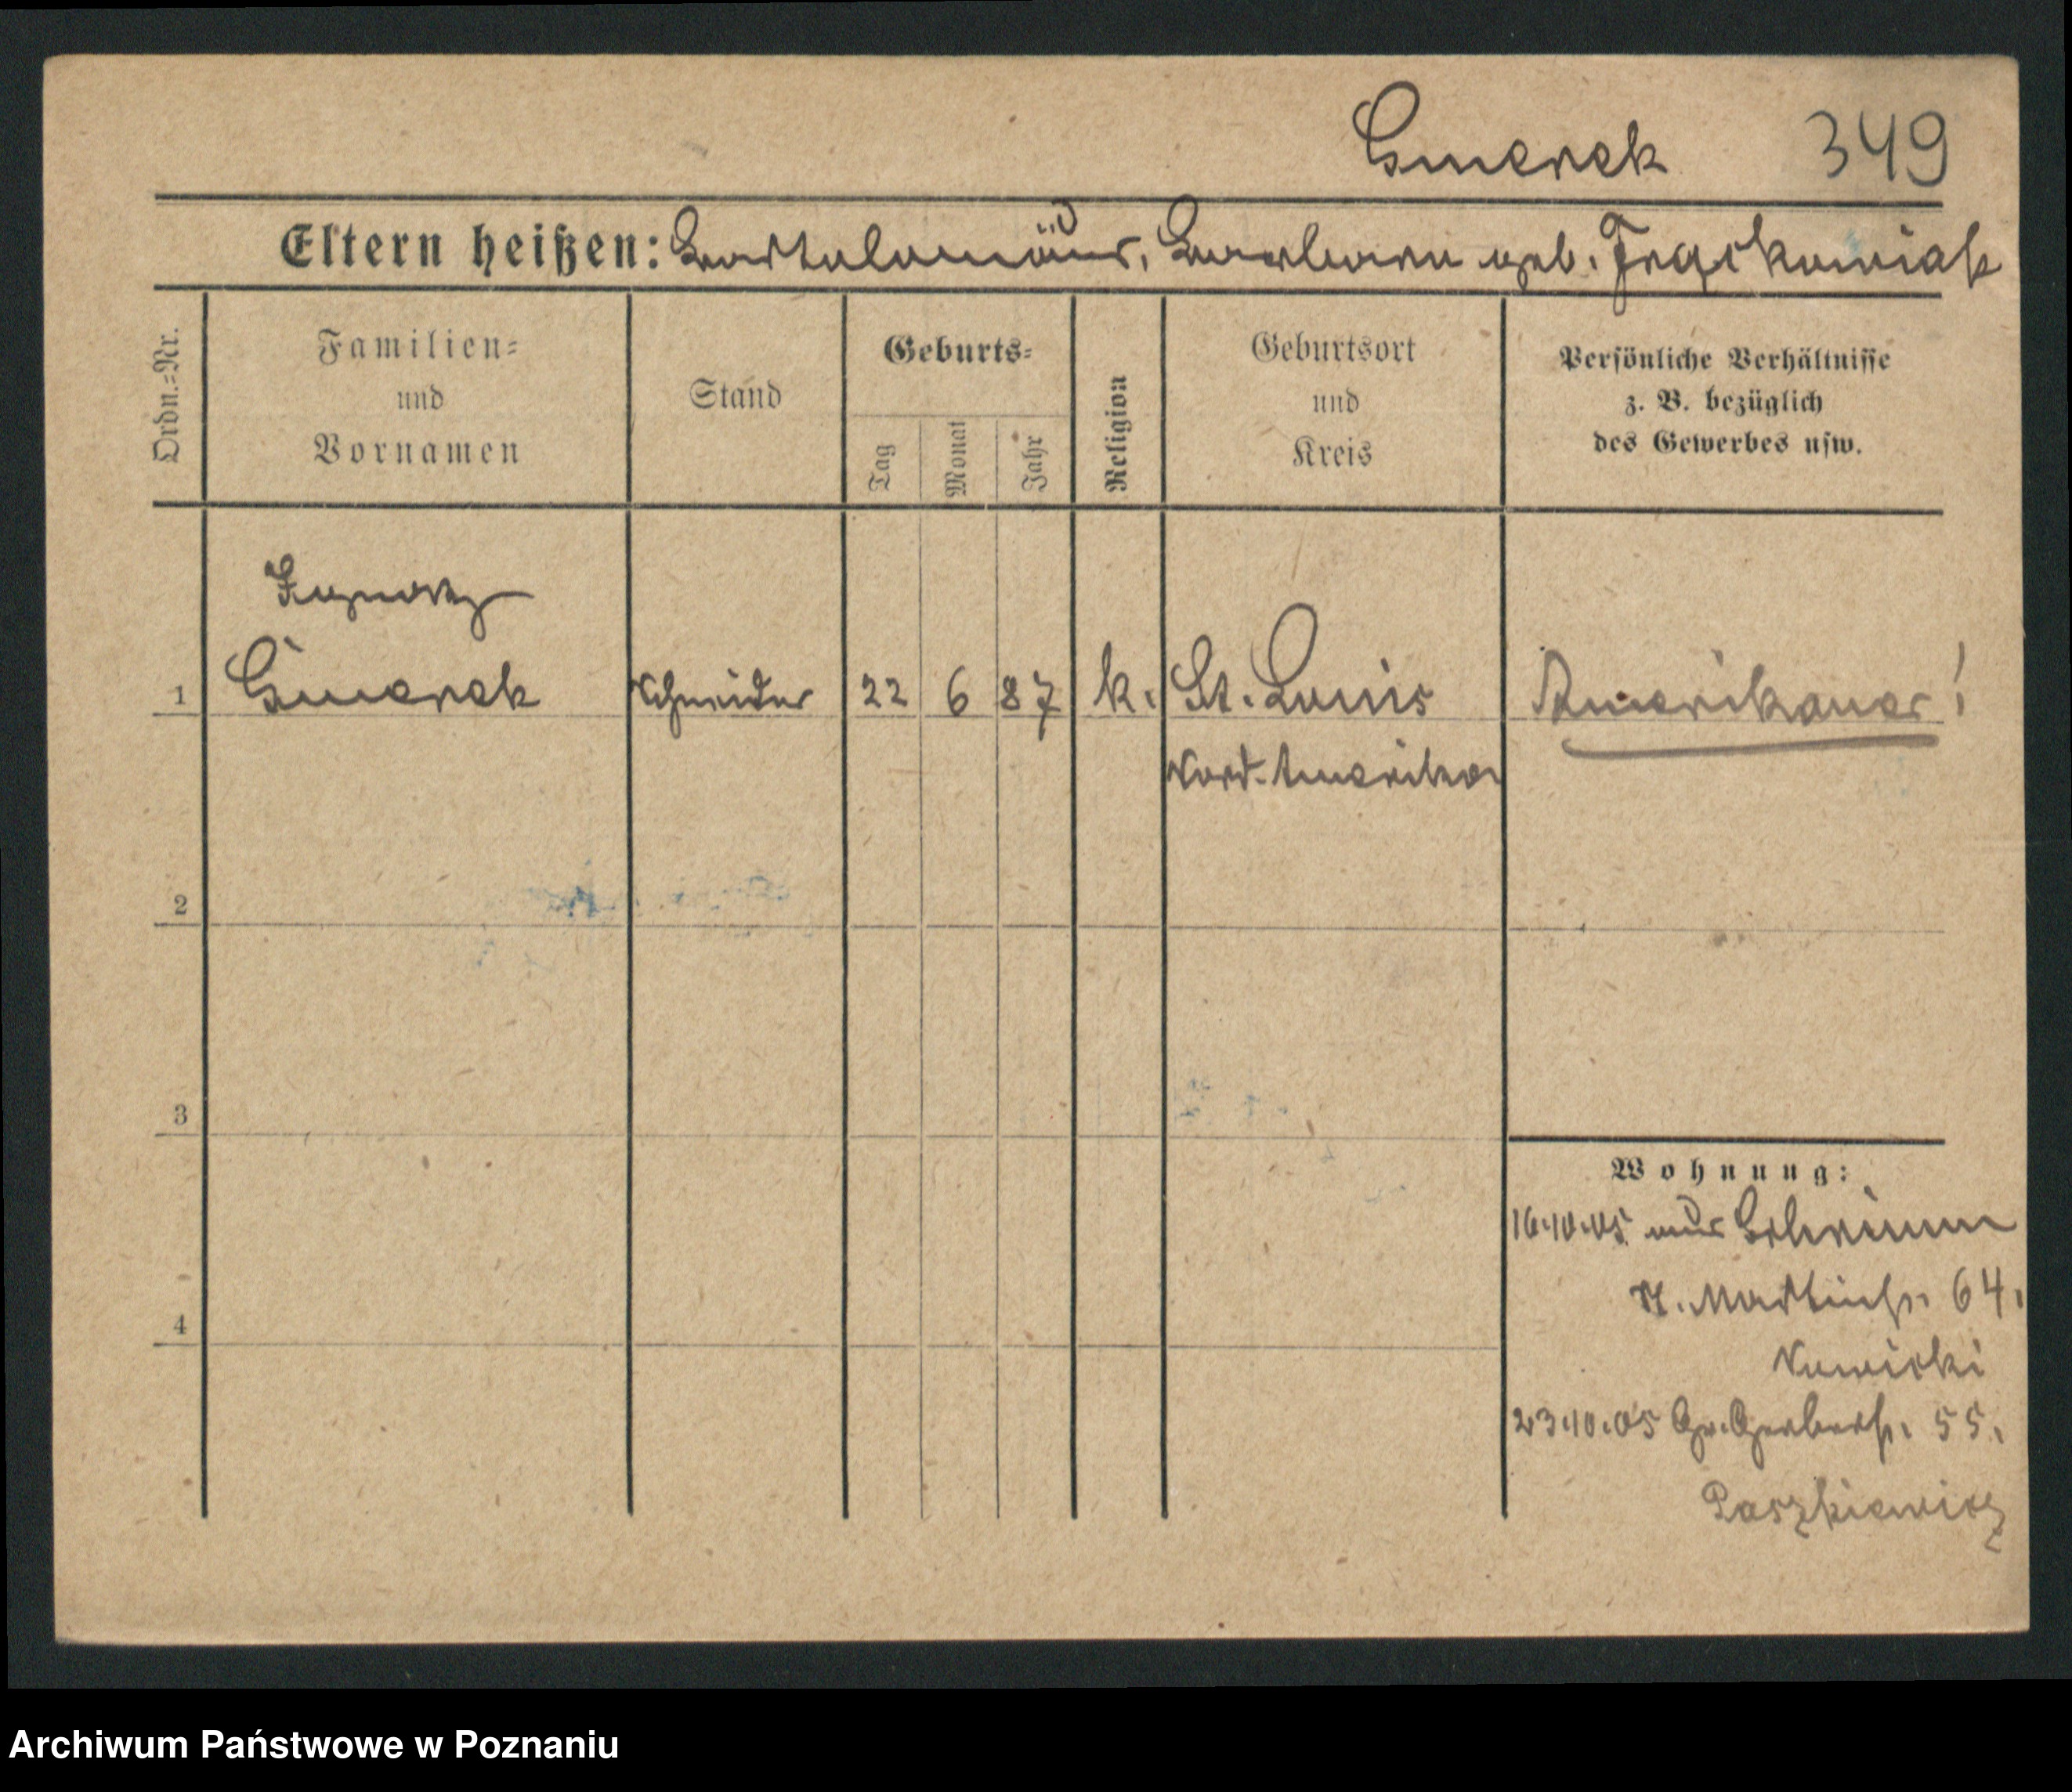 Gmerek 349
Eltern heißen: Bartolomäus, Barbara geb.
Ordn.=Nr.
Familien=
und
Vornamen
Stand
Geburts=
Tag
Monat
Jahr
Religion
Geburtsort
und
Kreis
Persönliche Verhältnisse
z. B. bezüglich
des Gewerbes usw.
Ignatz
1 Gmerek Schneider 22 6 87 k. St. Louis Amerikaner!
Nord-Amerika
2
3
Wohnung:
16.10.05 aus Schrimm
4
St. Martinstr. 64.
Nowicki
23.10.05 Gr. Gerberstr. 55.
Paszkiewicz
Archiwum Państwowe w Poznaniu